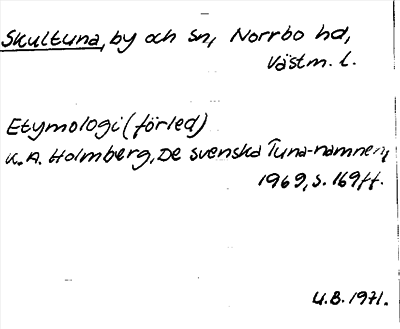 Skultuna, by och sn, Norrbo hd,
Västm. l.
Etymologi (förled)
K.A. Holmberg, De svenska Tuna-namnen,
1969, s. 169ff.
U.B. 1971.